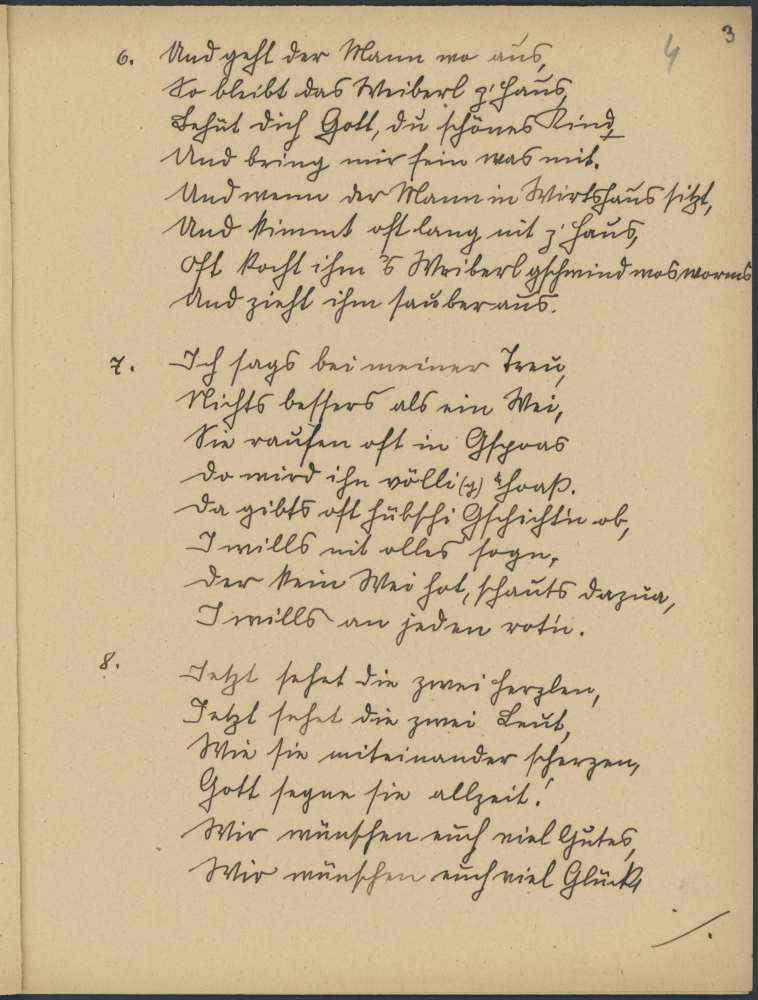 3
4
6. Und geht der Mann wo aus,
So bleibt das Weiberl z'Haus,
Behüt dich Gott, du schönes Kind,
Und bring mir fein was mit.
Und wenn der Mann in Wirtshaus sitzt,
Und kimmt oft lang nit z'Haus,
Oft kocht ihm 's Weiberl gschwind wos worms
Und zieht ihm sauber aus.
7. Ich sags bei meiner Treu,
Nichts bessers als ein Wei,
Sie raufen oft in Gspoas
Do wird ihn völli(g) hoaß.
Da gibts oft hübschi Gschicht'n ob,
I wills nit olles sogn,
Der kein Wei hot, schauts dazua,
I wills an jeden rot'n.
8. Jetzt sehet die zwei Herzlen,
Jetzt sehet die zwei Leut,
Wie sie miteinander scherzen,
Gott segne sie allzeit!
Wir wünschen euch viel Gutes,
Wir wünschen euch viel Glück,
./.